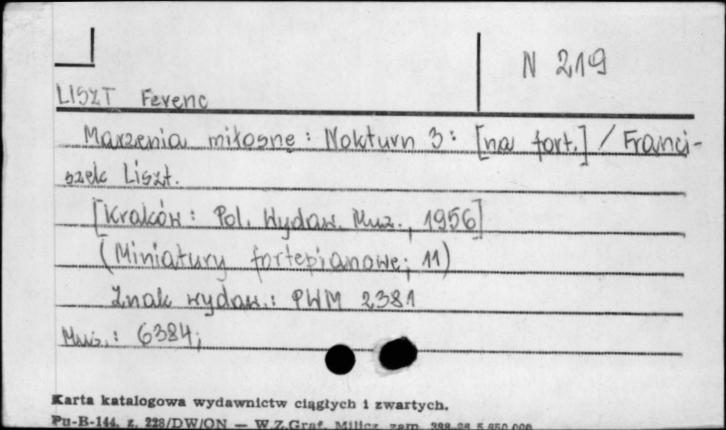 N 219
LISZT Ferenc
Marzenia miłosne : Nokturn 3 : [na fort.] / Franci-
szek Liszt.
[Kraków : Pol. Wydaw. Muz., 1956]
(Miniatury fortepianowe; 11)
Znak wydaw.: PWM 2381
Muz.: 6384;
Karta katalogowa wydawnictw ciągłych i zwartych.
Pu-B-144. z. 228/DW/ON — W.Z.Graf. Milicz zam.